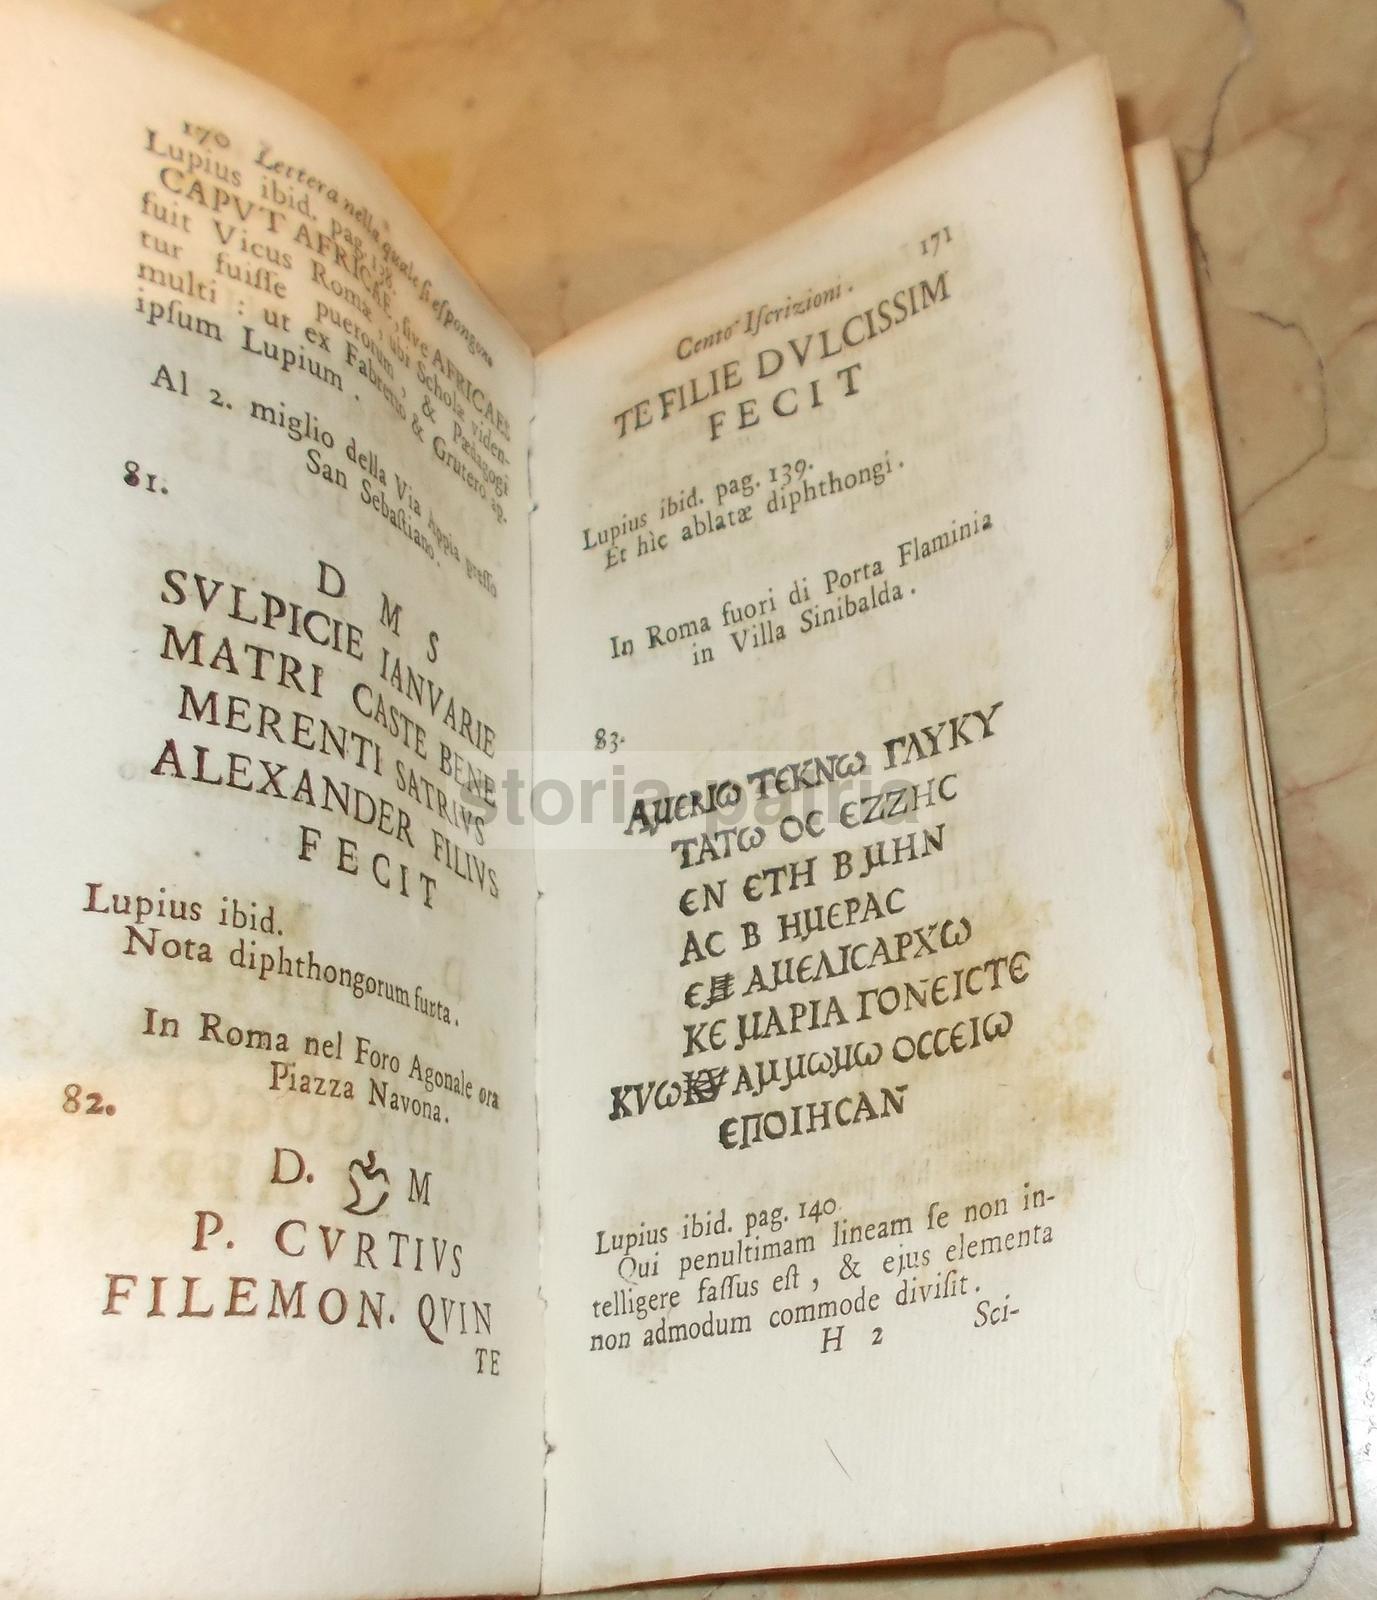 170 Lettera nella quale si espongono
Lupius ibid. pag. 138.
CAPVT AFRICAE, sive AFRICAES
fuit Vicus Romæ, ubi Scholæ viden-
tur fuiſſe puerorum, & Pædagogi
multi : ut ex Fabretto & Grutero ap.
ipſum Lupium .
Al 2. miglio della Via Appia preſſo
San Sebaſtiano.
81.
D M S
SVLPICIE IANVARIE
MATRI CASTE BENE
MERENTI SATRIVS
ALEXANDER FILIVS
FECIT
Lupius ibid.
Nota diphthongorum furta.
In Roma nel Foro Agonale ora
Piazza Navona.
82.
D. M
P. CVRTIVS
FILEMON. QVIN
TE
Cento Iſcrizioni. 171
TE FILIE DVLCISSIM
FECIT
Lupius ibid. pag. 139.
Et hìc ablatæ diphthongi.
In Roma fuori di Porta Flaminia
in Villa Sinibalda.
83.
ΑΜΕRΙω ΤΕΚΝω ΓΛΥΚΥ
ΤΑΤω ΟϹ ΕΖΖΗϹ
ΕΝ ΕΤΗ Β ΜΗΝ
ΑϹ Β ΗΜΕΡΑϹ
ΑΜΕΛΙϹΑΡΧω
ΚΕ ΜΑΡΙΑ ΓΟΝΕΙϹΤΕ
ΑΜΜωΜω ΟϹϹΕΙω
ΕΠΟΙΗϹΑΝ
Lupius ibid. pag. 140.
Qui penultimam lineam ſe non in-
telligere faſſus eſt, & ejus elementa
non admodum commode diviſit.
H 2 Sci-
storia patria